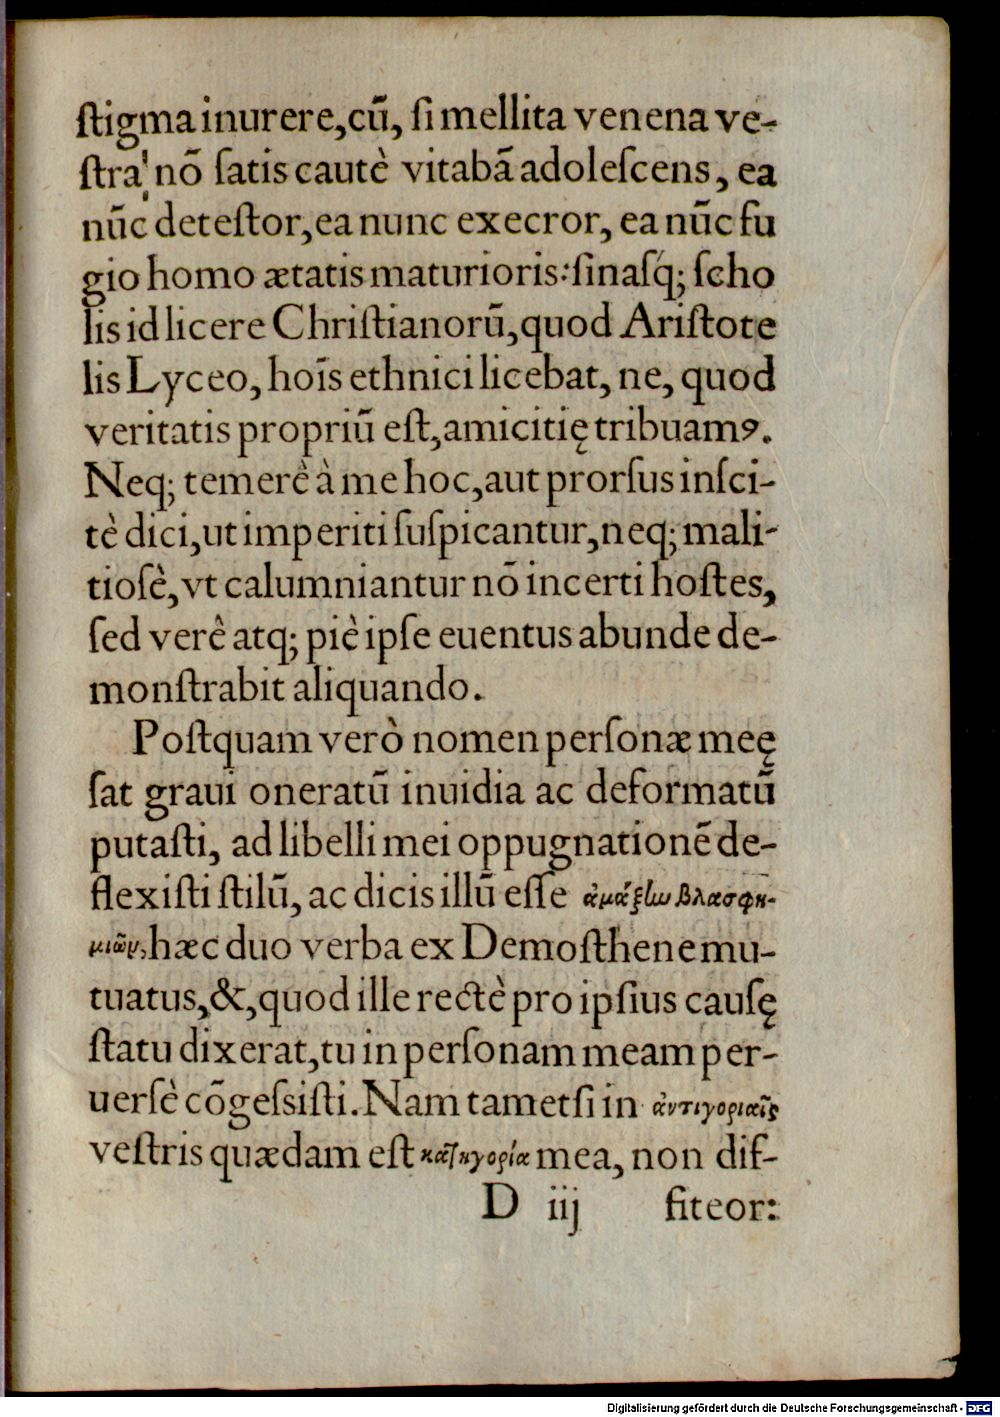 ſtigma inurere,cū, ſi mellita venena ve-
ſtra nō ſatis cautè vitabā adoleſcens, ea
nūc deteſtor,ea nunc execror, ea nūc fu
gio homo ætatis maturioris: ſinaſq; ſcho
lis id licere Chriſtianorū,quod Ariſtote
lis Lyceo, hoīs ethnici licebat, ne, quod
veritatis propriū eſt,amicitię tribuamꝰ.
Neq; temerè à me hoc,aut prorſus inſci-
tè dici,ut imperiti ſuſpicantur,neq; mali-
tioſè,vt calumniantur nō incerti hoſtes,
ſed verè atq; piè ipſe euentus abunde de-
monſtrabit aliquando.
Poſtquam verò nomen perſonæ meę
ſat graui oneratū inuidia ac deformatū
putaſti, ad libelli mei oppugnationē de-
flexiſti ſtilū, ac dicis illū eſſe ἁμάξων βλασφη-
μιῶν,hæc duo verba ex Demoſthene mu-
tuatus,&,quod ille rectè pro ipſius cauſę
ſtatu dixerat,tu in perſonam meam per-
uerſè cōgeſsiſti.Nam tametſi in ἀντιγοριαῖς
veſtris quædam eſt κατηγορία mea, non dif-
D iij fiteor:
Digitalisierung gefördert durch die Deutsche Forschungsgemeinschaft - DFG